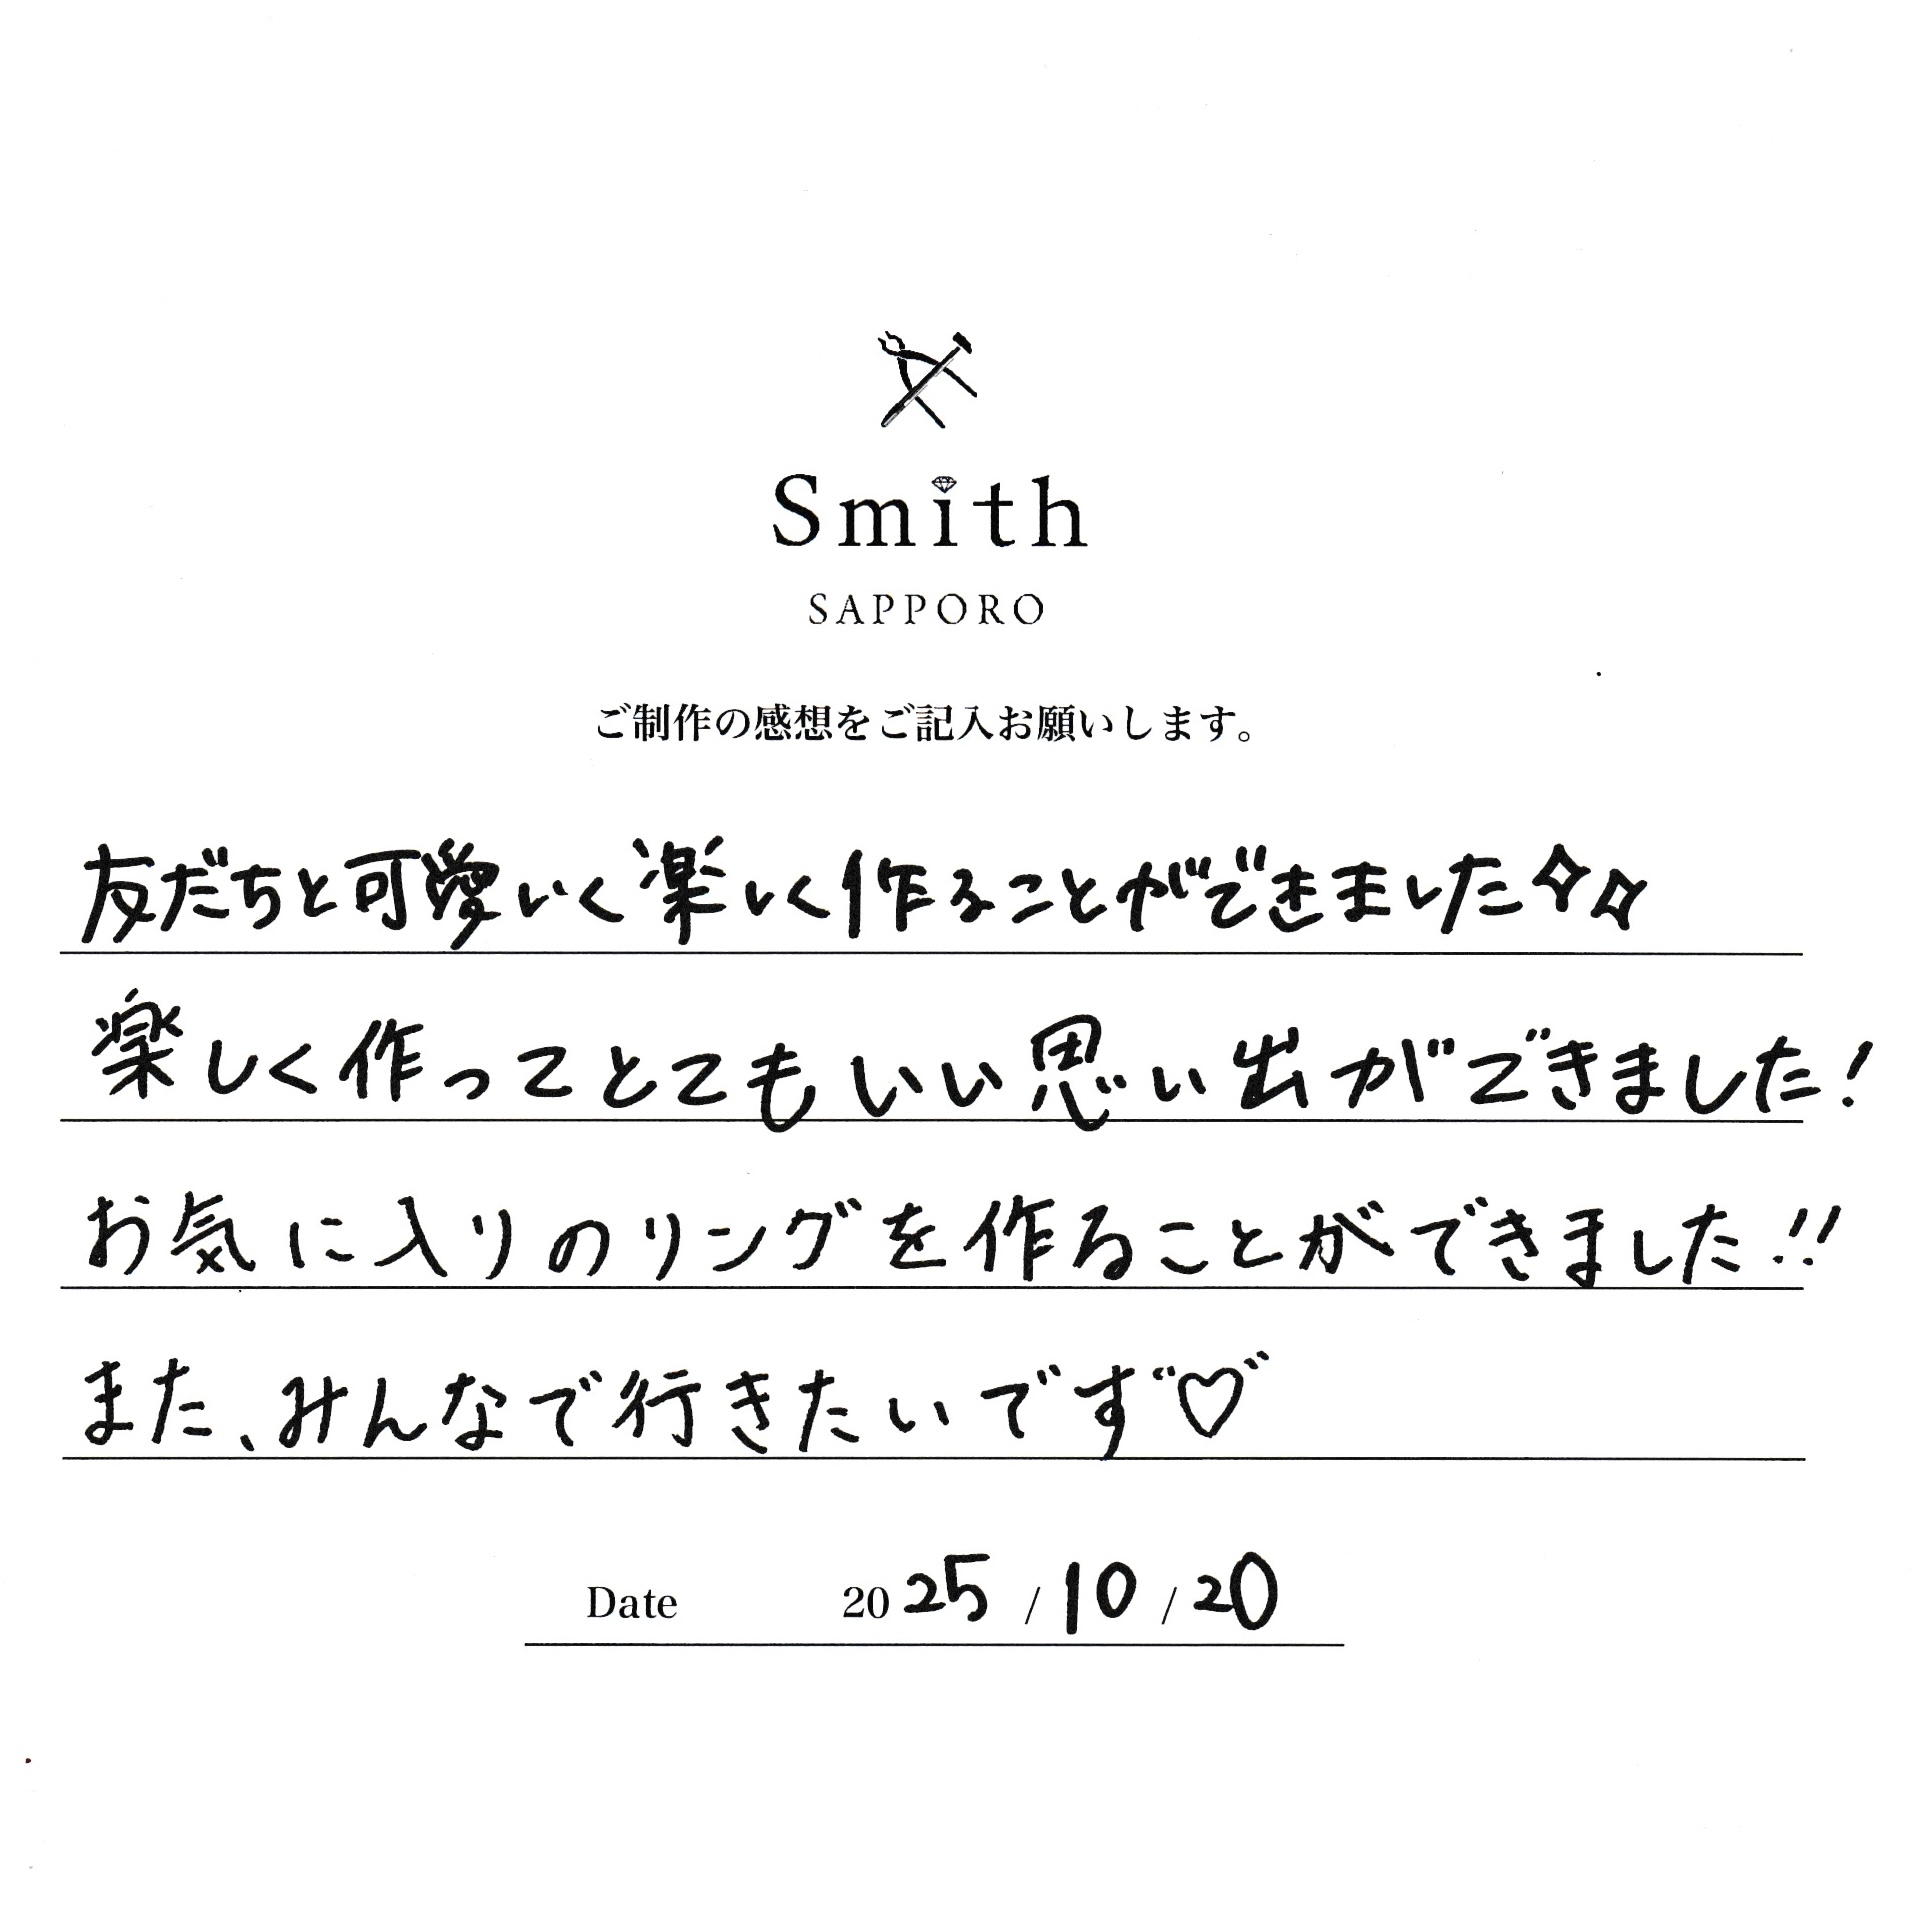 Smith
SAPPORO
ご制作の感想をご記入お願いします。
友だちと可愛いく楽しく作ることができました✧✧
楽しく作ってとてもいい思い出ができました!
お気に入りのリングを作ることができました!!
また、みんなで行きたいです♡
Date 2025/10/20